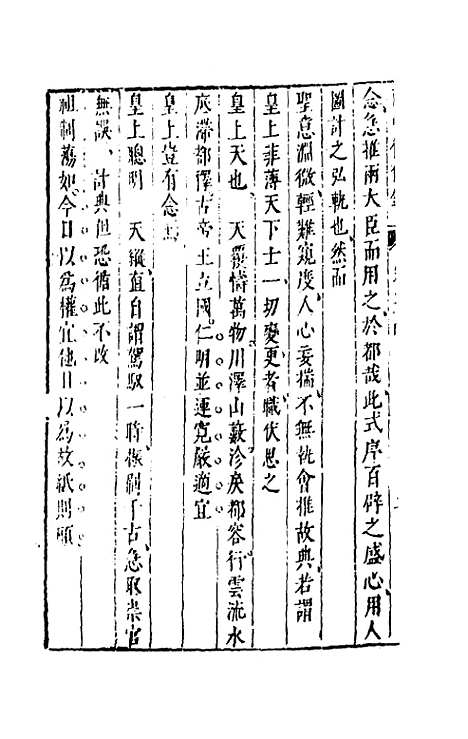 念急推兩大臣而用之於都哉此式序百辟之盛心用人
圖計之弘軌也然而
聖意淵微輕難窺度人心妄揣不無謂會推故典若謂
皇上菲薄天下士一切變更者職伏思之
皇上天也 天覆幬萬物川澤山藪沴戾都容行雲流水
底滯都釋古帝王立國仁明並運寬嚴適宜
皇上豈有念焉
皇上聰明 天縱直自謂駕馭一時操制千古急取崇官
無誤計典但恐循此不改
祖制蕩如今日以為權宜他日以為故紙則頭